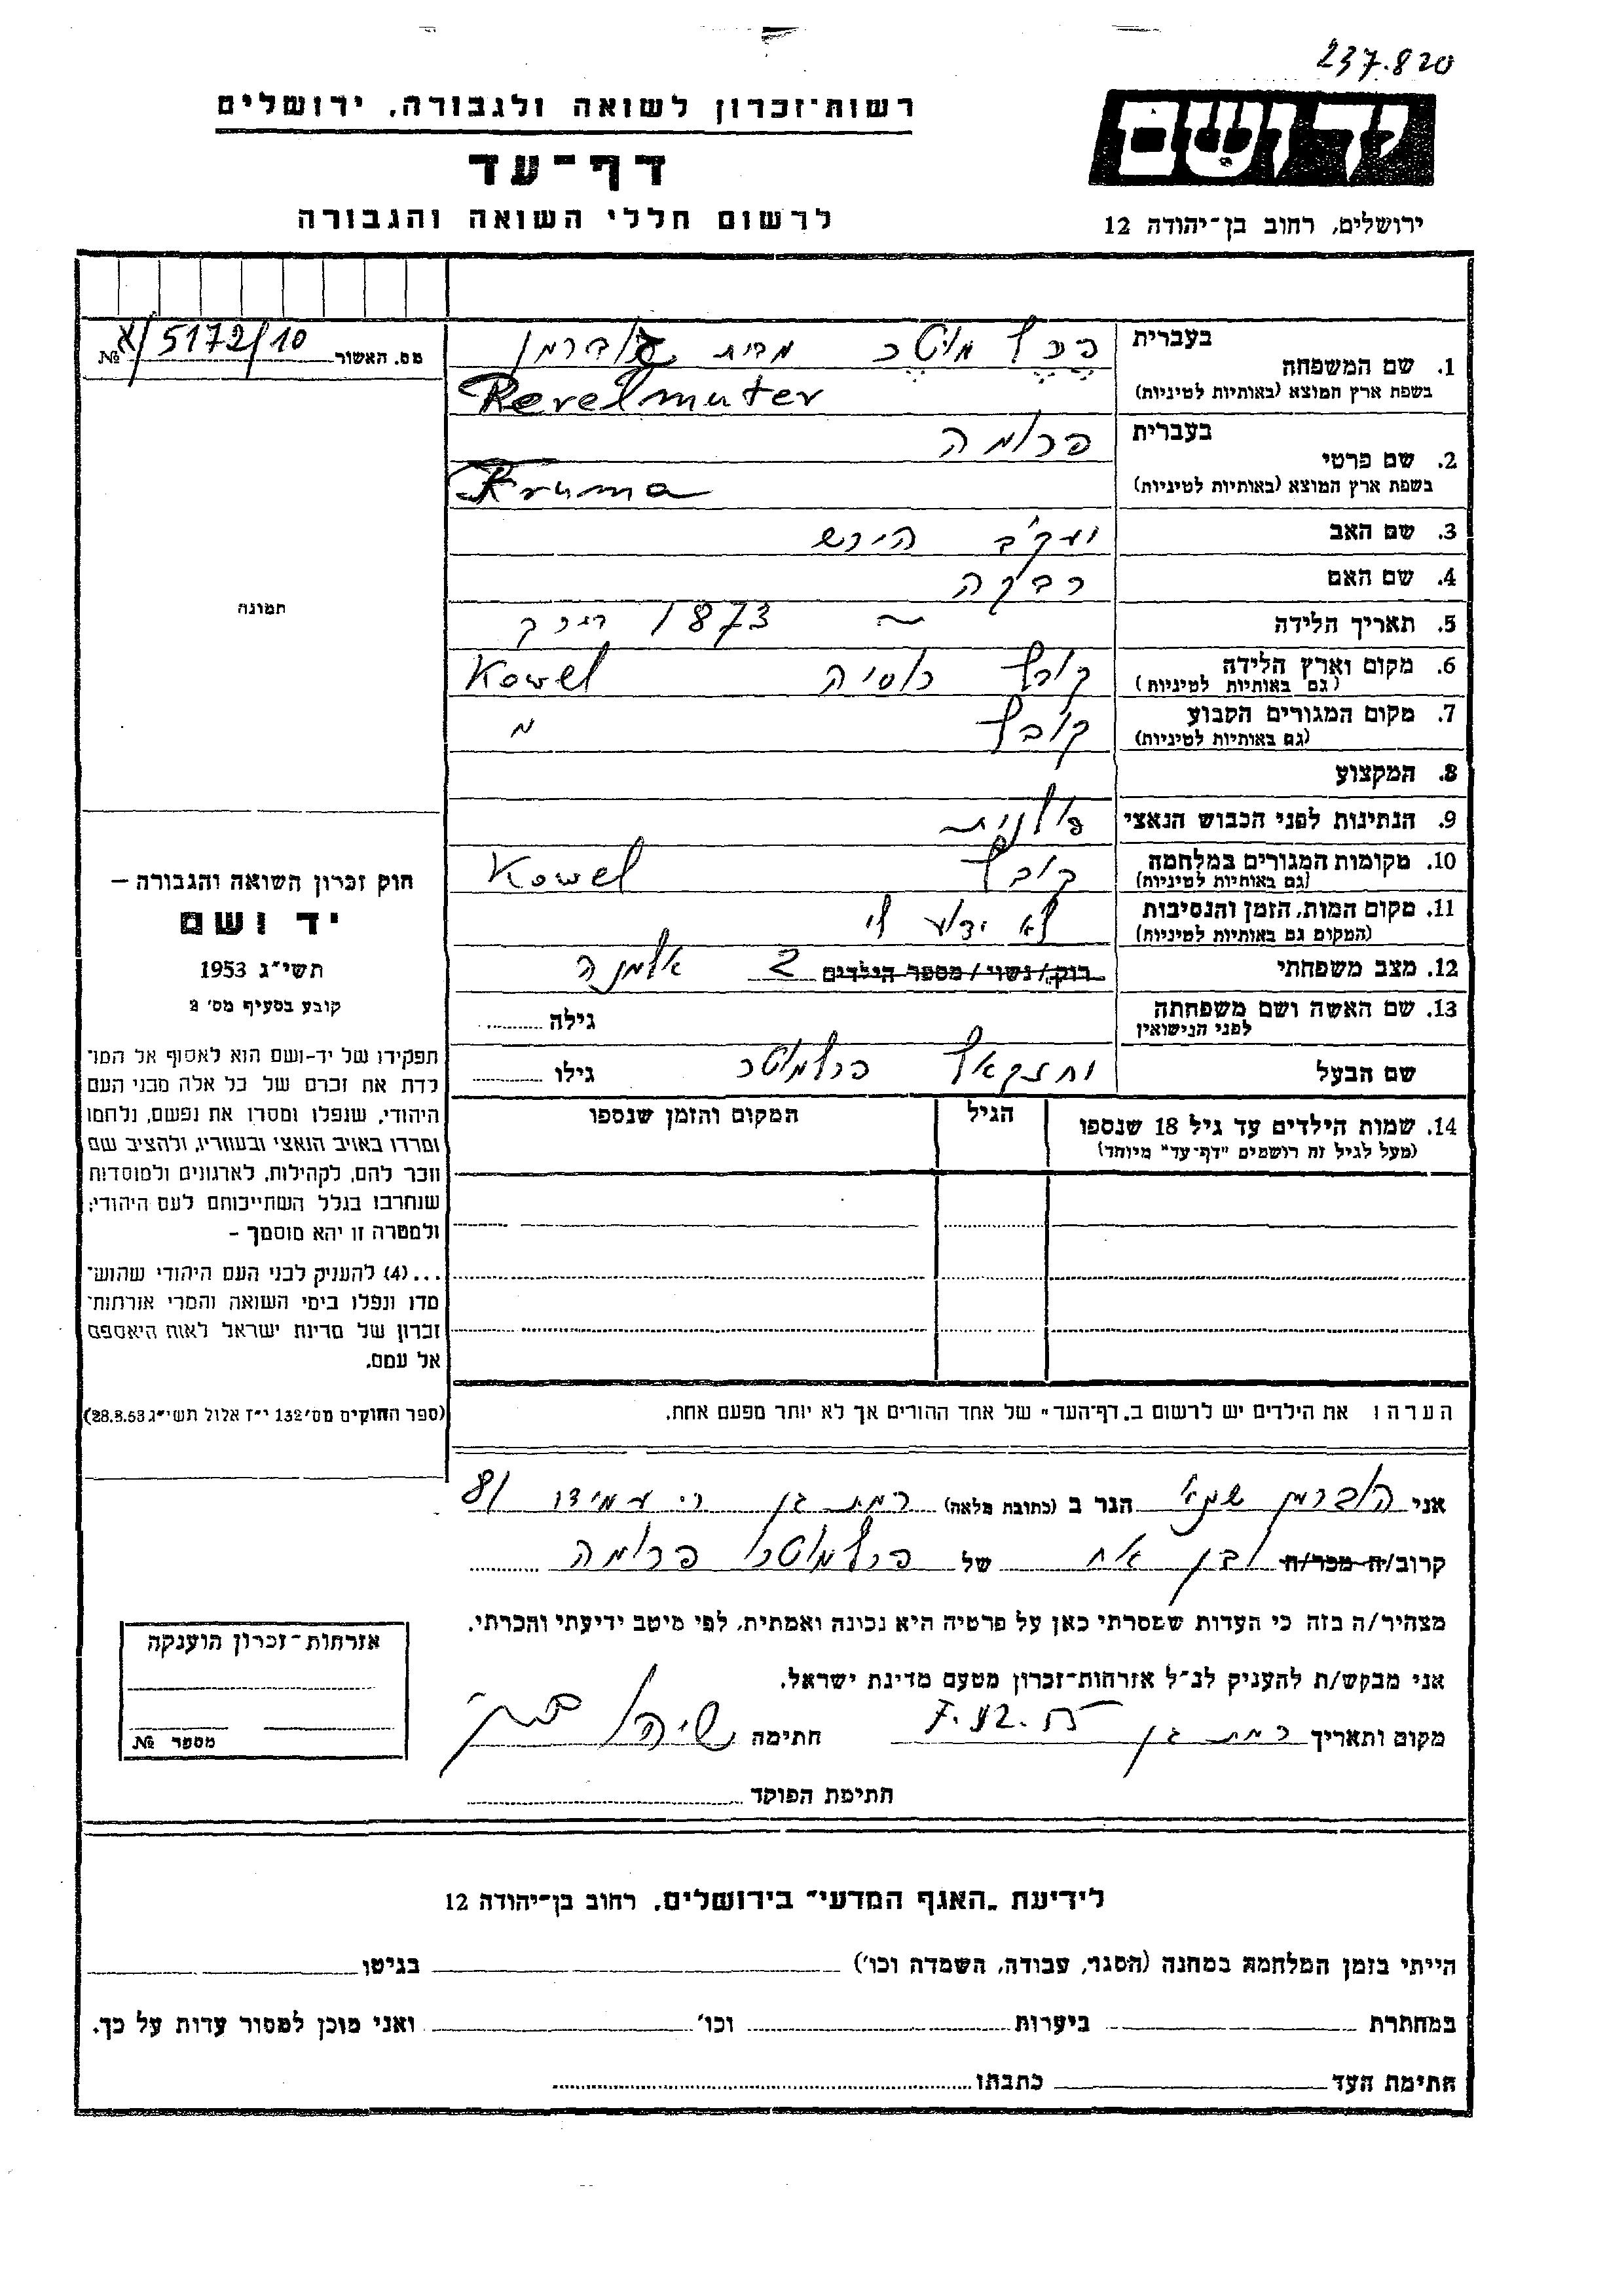 237.820
רשות־זכרון לשואה ולגבורה, ירושלים
דף־עד
לרשום חללי השואה והגבורה
יד ושם
ירושלים, רחוב בן־יהודה 12
מס. האשור № א/5172/10
1. שם המשפחה
בעברית מבית
בשפת ארץ המוצא (באותיות לטיניות) Perelmuter
2. שם פרטי
בעברית פרומה
בשפת ארץ המוצא (באותיות לטיניות) Fruma
3. שם האב יעקב הירש
4. שם האם רבקה
5. תאריך הלידה ~ 1873
6. מקום וארץ הלידה קובל רוסיה Kowel
(גם באותיות לטיניות)
7. מקום המגורים הקבוע קובל
(גם באותיות לטיניות)
8. המקצוע
9. הנתינות לפני הכבוש הנאצי פולנית
10. מקומות המגורים במלחמה קובל Kowel
(גם באותיות לטיניות)
11. מקום המות, הזמן והנסיבות לא ידוע לי
(המקום גם באותיות לטיניות)
12. מצב משפחתי רוק/נשוי/מספר הילדים 2 אלמנה
13. שם האשה ושם משפחתה
לפני הנישואין
גילה
שם הבעל יחזקאל פרלמוטר גילו
14. שמות הילדים עד גיל 18 שנספו
(מעל לגיל זה רושמים "דף־עד" מיוחד)
הגיל
המקום והזמן שנספו
הערה: את הילדים יש לרשום ב„דף־העד" של אחד ההורים אך לא יותר מפעם אחת.
תמונה
חוק זכרון השואה והגבורה –
יד ושם
תשי"ג 1953
קובע בסעיף מס' 2
תפקידו של יד־ושם הוא לאסוף אל המו־
לדת את זכרם של כל אלה מבני העם
היהודי, שנפלו ומסרו את נפשם, נלחמו
ומרדו באויב הנאצי ובעוזריו, ולהציב שם
וזכר להם, לקהילות, לארגונים ולמוסדות
שנחרבו בגלל השתייכותם לעם היהודי;
ולמטרה זו יהא מוסמך –
...(4) להעניק לבני העם היהודי שהוש־
מדו ונפלו בימי השואה והמרי אזרחות־
זכרון של מדינת ישראל לאות היאספם
אל עמם.
(ספר החוקים מס' 132 י"ז אלול תשי"ג 28.8.53)
אני הגר ב (כתובת מלאה) רמת גן רח עמידר 8/
קרוב/ה מכר/ה בן אח של פרלמוטר פרומה
מצהיר/ה בזה כי העדות שמסרתי כאן על פרטיה היא נכונה ואמתית, לפי מיטב ידיעתי והכרתי.
אני מבקש/ת להעניק לנ"ל אזרחות־זכרון מטעם מדינת ישראל.
מקום ותאריך רמת גן 7.12.55 חתימה
חתימת הפוקד
אזרחות־זכרון הוענקה
מספר №
לידיעת „האגף המדעי" בירושלים, רחוב בן־יהודה 12
הייתי בזמן המלחמה במחנה (הסגר, עבודה, השמדה וכו') בגיטו
במחתרת ביערות וכו' ואני מוכן למסור עדות על כך.
חתימת העד כתבתו